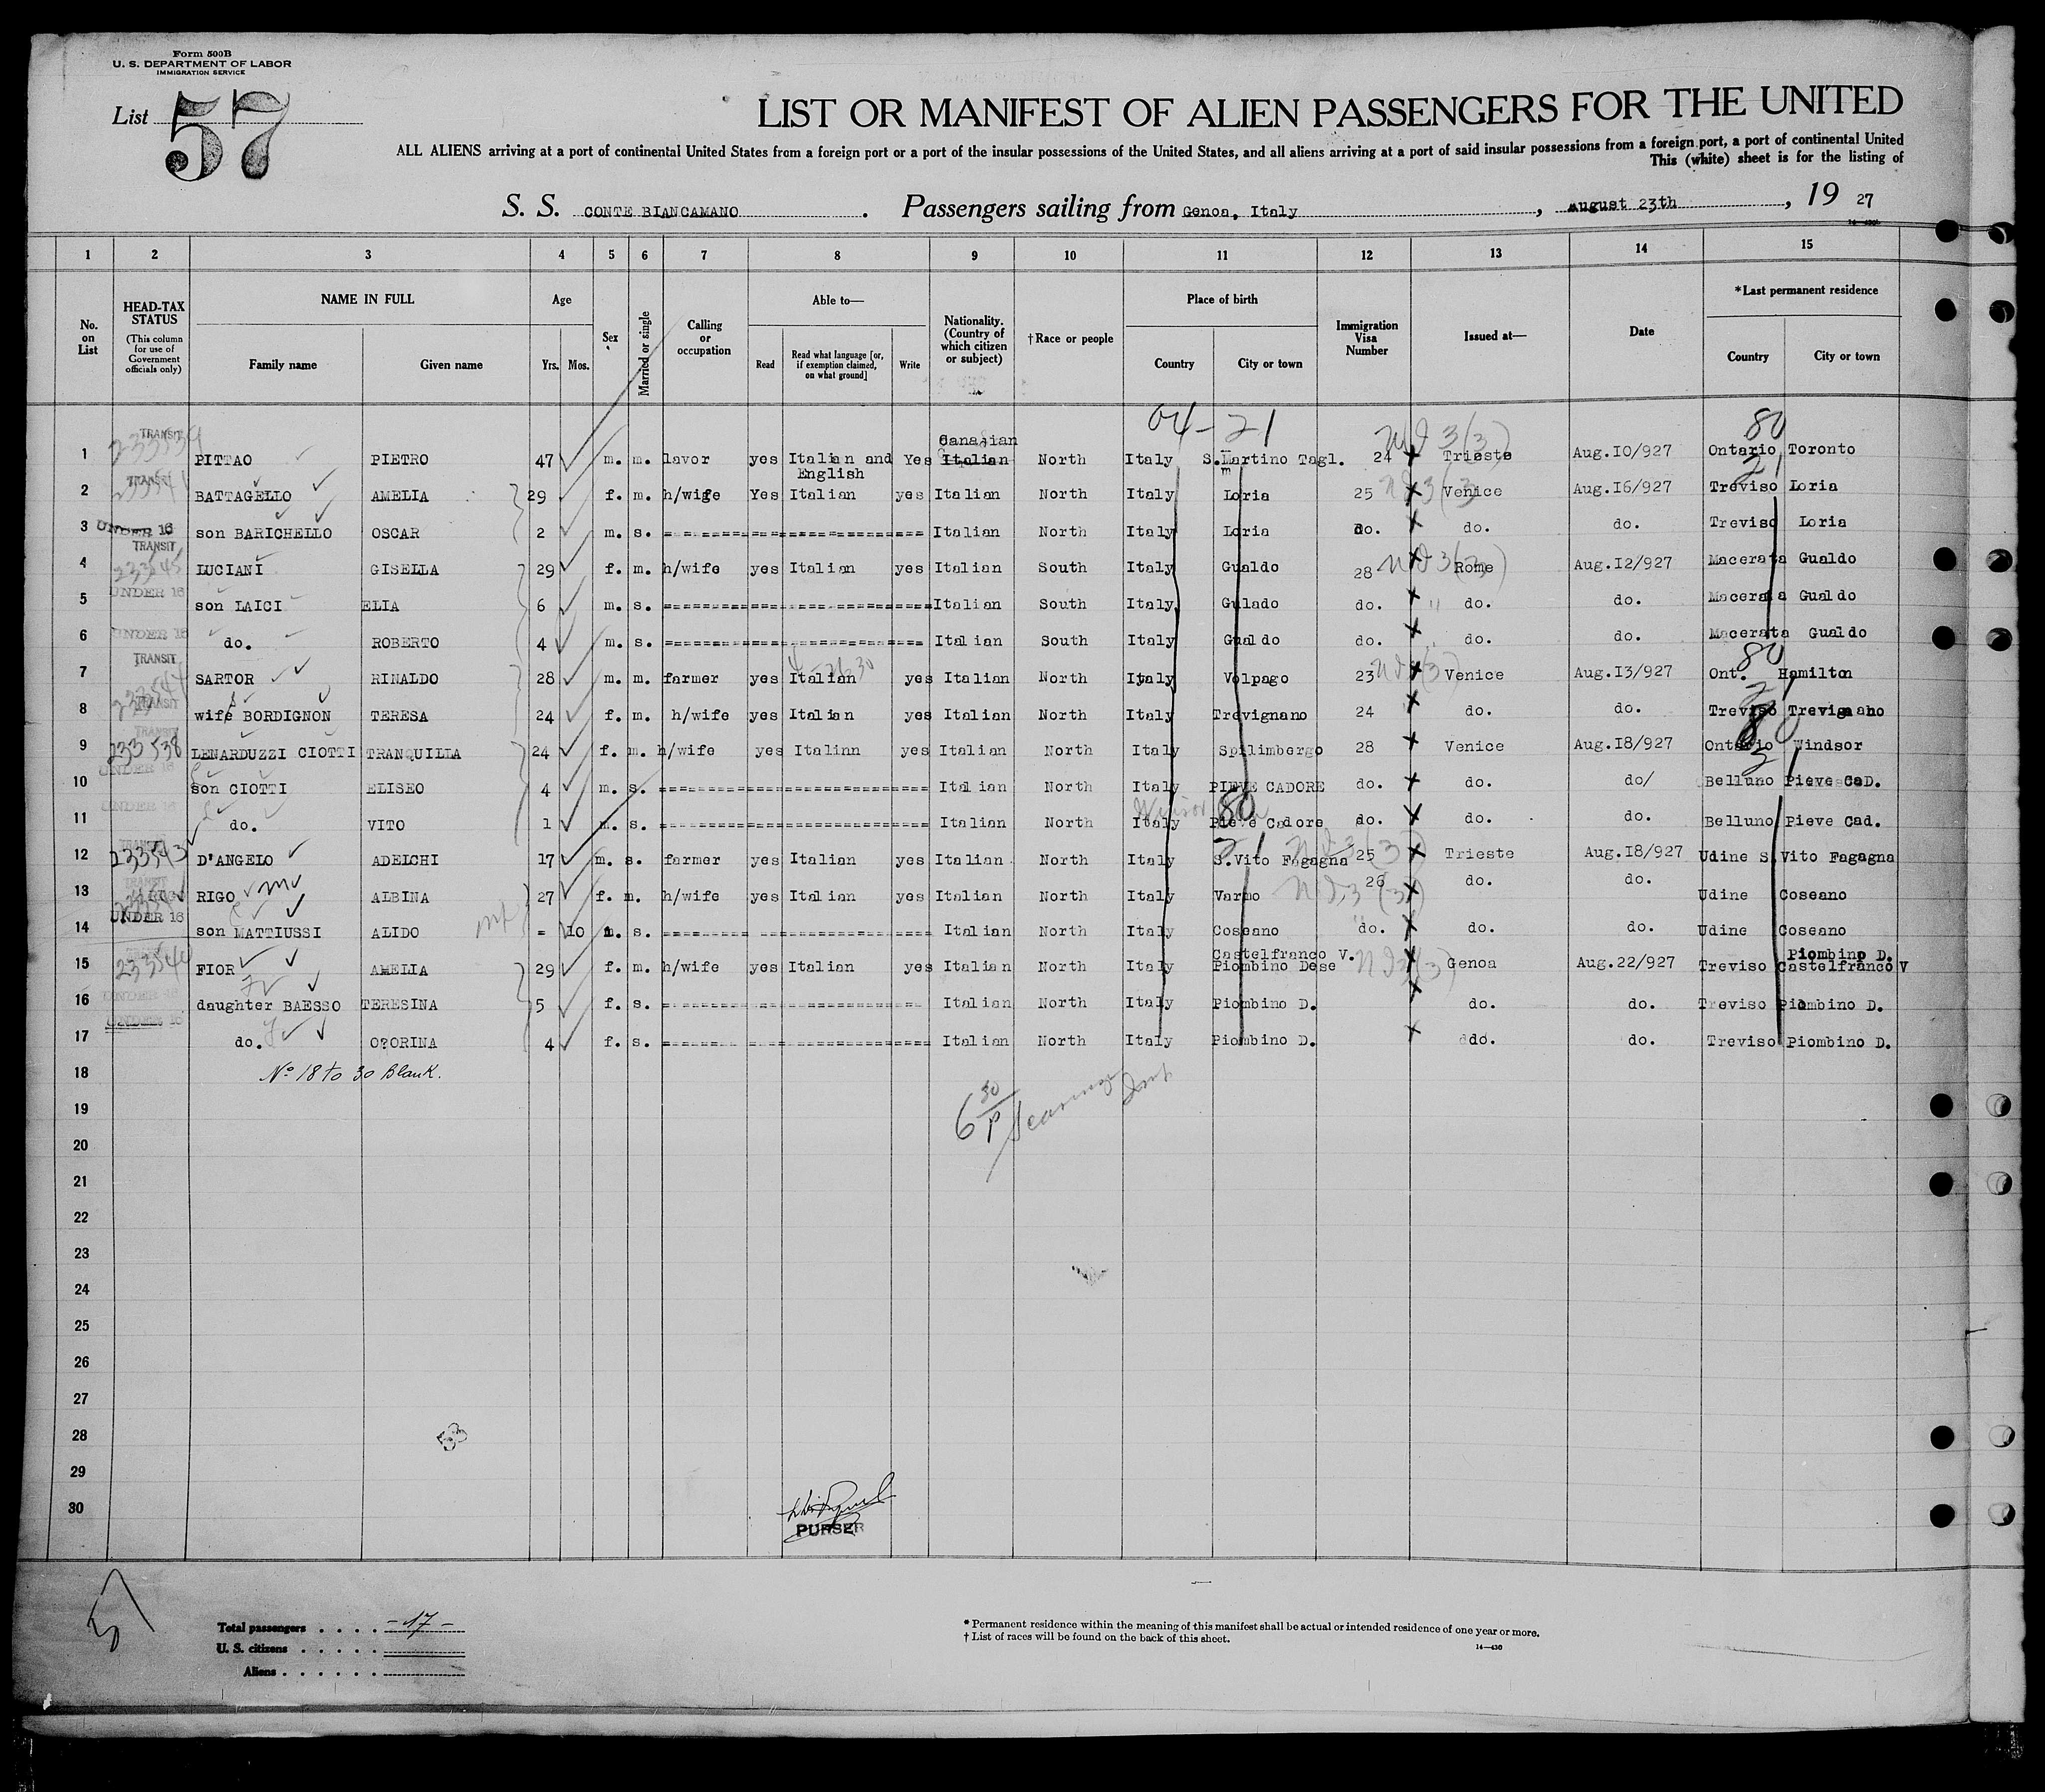 Form 500B
U. S. DEPARTMENT OF LABOR
IMMIGRATION SERVICE
List 57
LIST OR MANIFEST OF ALIEN PASSENGERS FOR THE UNITED
ALL ALIENS arriving at a port of continental United States from a foreign port or a port of the insular possessions of the United States, and all aliens arriving at a port of said insular possessions from a foreign port, a port of continental United
This (white) sheet is for the listing of
S. S. CONTE BIANCAMANO . Passengers sailing from Genoa, Italy , August 23th , 19 27
1 2 3 4 5 6 7 8 9 10 11 12 13 14 15
No. on List
HEAD-TAX STATUS (This column for use of Government officials only)
NAME IN FULL Family name Given name
Age Yrs. Mos.
Sex
Married or single
Calling or occupation
Able to— Read Read what language [or, if exemption claimed, on what ground] Write
Nationality. (Country of which citizen or subject)
†Race or people
Place of birth Country City or town
Immigration Visa Number
Issued at—
Date
*Last permanent residence Country City or town
04-21 80
1 TRANSIT 233539 PITTAO PIETRO 47 m. m. lavor yes Italian and English Yes Canadian Italian North Italy S.Martino Tagl. 24 Trieste Aug.10/927 Ontario Toronto
2 TRANSIT BATTAGELLO AMELIA 29 f. m. h/wige Yes Italian yes Italian North Italy Loria 25 Venice Aug.16/927 Treviso Loria
3 UNDER 16 son BARICHELLO OSCAR 2 m. s. Italian North Italy Loria do. do. do. Treviso Loria
4 TRANSIT 233545 LUCIANI GISELLA 29 f. m. h/wife yes Italian yes Italian South Italy Gualdo 28 Rome Aug.12/927 Macerata Gualdo
5 UNDER 16 son LAICI ELIA 6 m. s. Italian South Italy Gulado do. do. do. Macerata Gualdo
6 UNDER 16 do. ROBERTO 4 m. s. Italian South Italy Gualdo do. do. do. Macerata Gualdo
7 TRANSIT SARTOR RINALDO 28 m. m. farmer yes Italian yes Italian North Italy Volpago 23 Venice Aug.13/927 Ont. Hamilton
8 TRANSIT wife BORDIGNON TERESA 24 f. m. h/wife yes Italian yes Italian North Italy Trevignano 24 do. do. Treviso Trevignano
9 TRANSIT 233538 LENARDUZZI CIOTTI TRANQUILLA 24 f. m. h/wife yes Italinn yes Italian North Italy Spilimbergo 28 Venice Aug.18/927 Ontario Windsor
10 UNDER 16 son CIOTTI ELISEO 4 m. s. Italian North Italy PIEVE CADORE do. do. do/ Belluno Pieve CaD.
11 UNDER 16 do. VITO 1 m. s. Italian North Italy Pieve Cadore do. do. do. Belluno Pieve Cad.
12 TRANSIT 233543 D'ANGELO ADELCHI 17 m. s. farmer yes Italian yes Italian North Italy S.Vito Fagagna 25 Trieste Aug.18/927 Udine S.Vito Fagagna
13 TRANSIT RIGO ALBINA 27 f. m. h/wife yes Italian yes Italian North Italy Varmo 26 do. do. Udine Coseano
14 UNDER 16 son MATTIUSSI ALIDO - 10 m. s. Italian North Italy Coseano do. do. do. Udine Coseano
15 233540 FIOR AMELIA 29 f. m. h/wife yes Italian yes Italian North Italy Castelfranco V. Piombino Dese Genoa Aug.22/927 Treviso Piombino D. Castelfranco V
16 UNDER 16 daughter BAESSO TERESINA 5 f. s. Italian North Italy Piombino D. do. do. Treviso Piombino D.
17 UNDER 16 do. O?ORINA 4 f. s. Italian North Italy Piombino D. ddo. do. Treviso Piombino D.
18 No 18 to 30 Blank.
19
20
21
22
23
24
25
26
27
28
29
30
6 30 P Hearing
53
PURSER
57
Total passengers . . . . - 17 -
U. S. citizens . . . . .
Aliens . . . . . .
* Permanent residence within the meaning of this manifest shall be actual or intended residence of one year or more.
† List of races will be found on the back of this sheet.
14—430